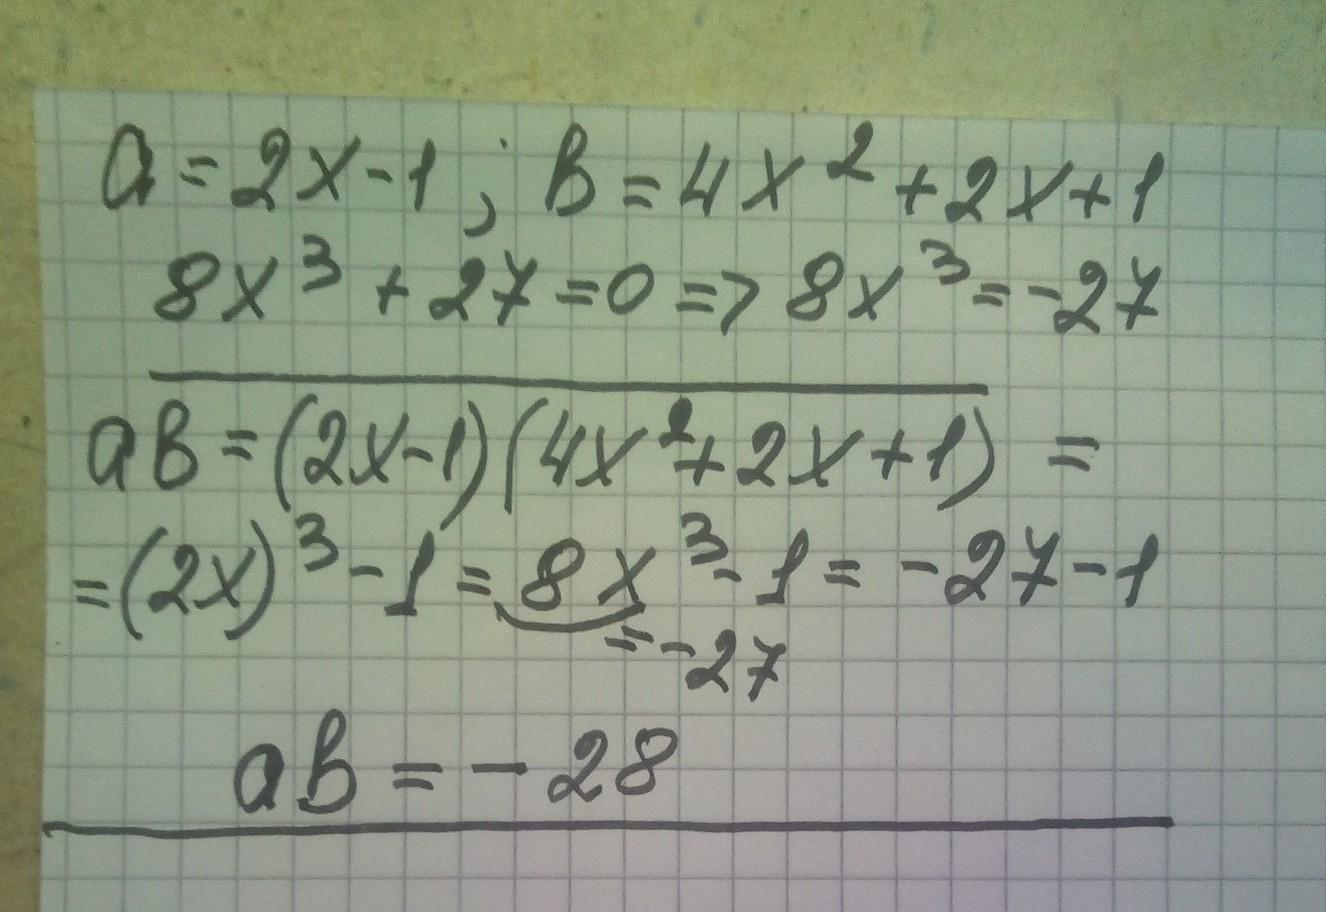 a = 2x-1 ; B = 4x² + 2x + 1
8x³ + 27 = 0 => 8x³ = -27
aB = (2x-1)(4x² + 2x + 1) =
= (2x)³ - 1 = 8x³ - 1 = -27 - 1
= -27
aB = - 28